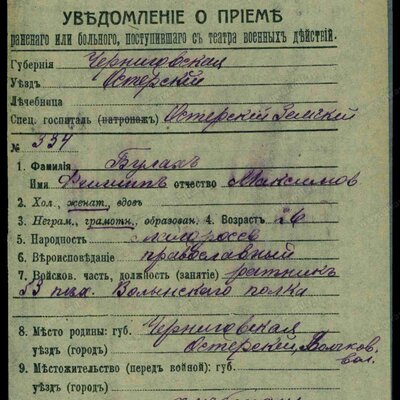 УВѢДОМЛЕНІЕ О ПРІЕМѢ
раненаго или больного, поступившаго съ театра военныхъ дѣйствій.
Губернія Черниговская
Уѣздъ Остерскій
Лѣчебница
Спец. госпиталь (патронаж) Остерскій Земскій
№ 334
1. Фамилія Булахъ
Имя Филиппъ отчество Максимов
2. Хол., женат., вдов
3. Неграм., грамотн., образован. 4. Возраст 26
5. Народность малоросс
6. Вѣроисповѣданіе православный
7. Войсков. часть, должность (занятіе) ратникъ
53 Волынского полка
8. Мѣсто родины: губ. Черниговская
уѣзд (город) Остерскій, вол.
9. Мѣстожительство (перед войной): губ.
уѣзд (город)